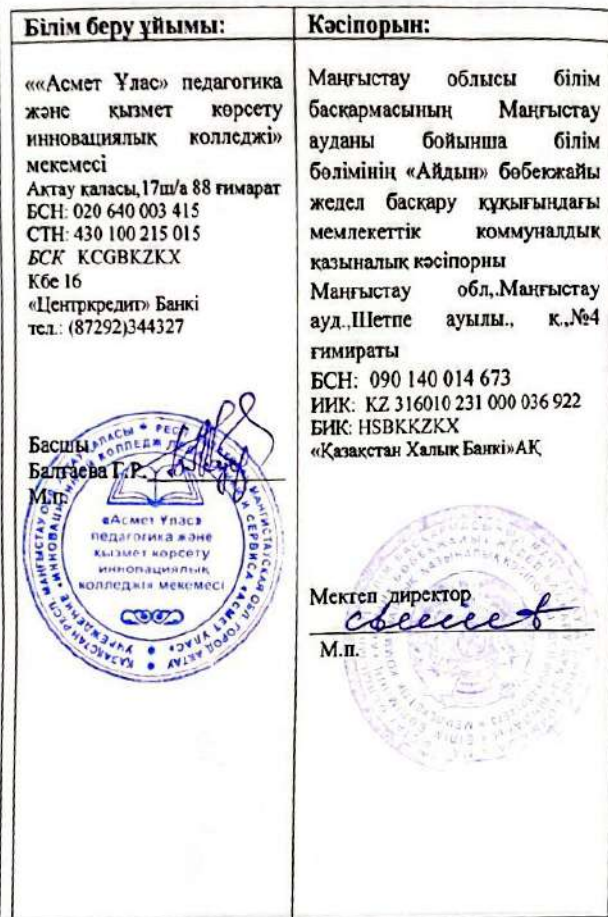 Білім беру ұйымы:
««Асмет Ұлас» педагогика
және қызмет көрсету
инновациялық колледжі»
мекемесі
Ақтау қаласы,17ш/а 88 ғимарат
БСН: 020 640 003 415
СТН: 430 100 215 015
БСК KCGBKZKX
Кбе 16
«Центркредит» Банкі
тел.: (87292)344327
Басшы
Балтаева Г.Р.
М.п.
«Асмет Ұлас»
педагогика және
қызмет көрсету
инновациялық
колледжія мекемесі
Кәсіпорын:
Маңғыстау облысы білім
басқармасының Маңғыстау
ауданы бойынша білім
бөлімінің «Айдын» бөбекжайы
жедел басқару құқығындағы
мемлекеттік коммуналдық
қазыналық кәсіпорны
Маңғыстау обл,.Маңғыстау
ауд.,Шетпе ауылы., к.,№4
ғимираты
БСН: 090 140 014 673
ИИК: KZ 316010 231 000 036 922
БИК: HSBKKZKX
«Қазақстан Халық Банкі»АҚ
Мектеп директор
М.п.